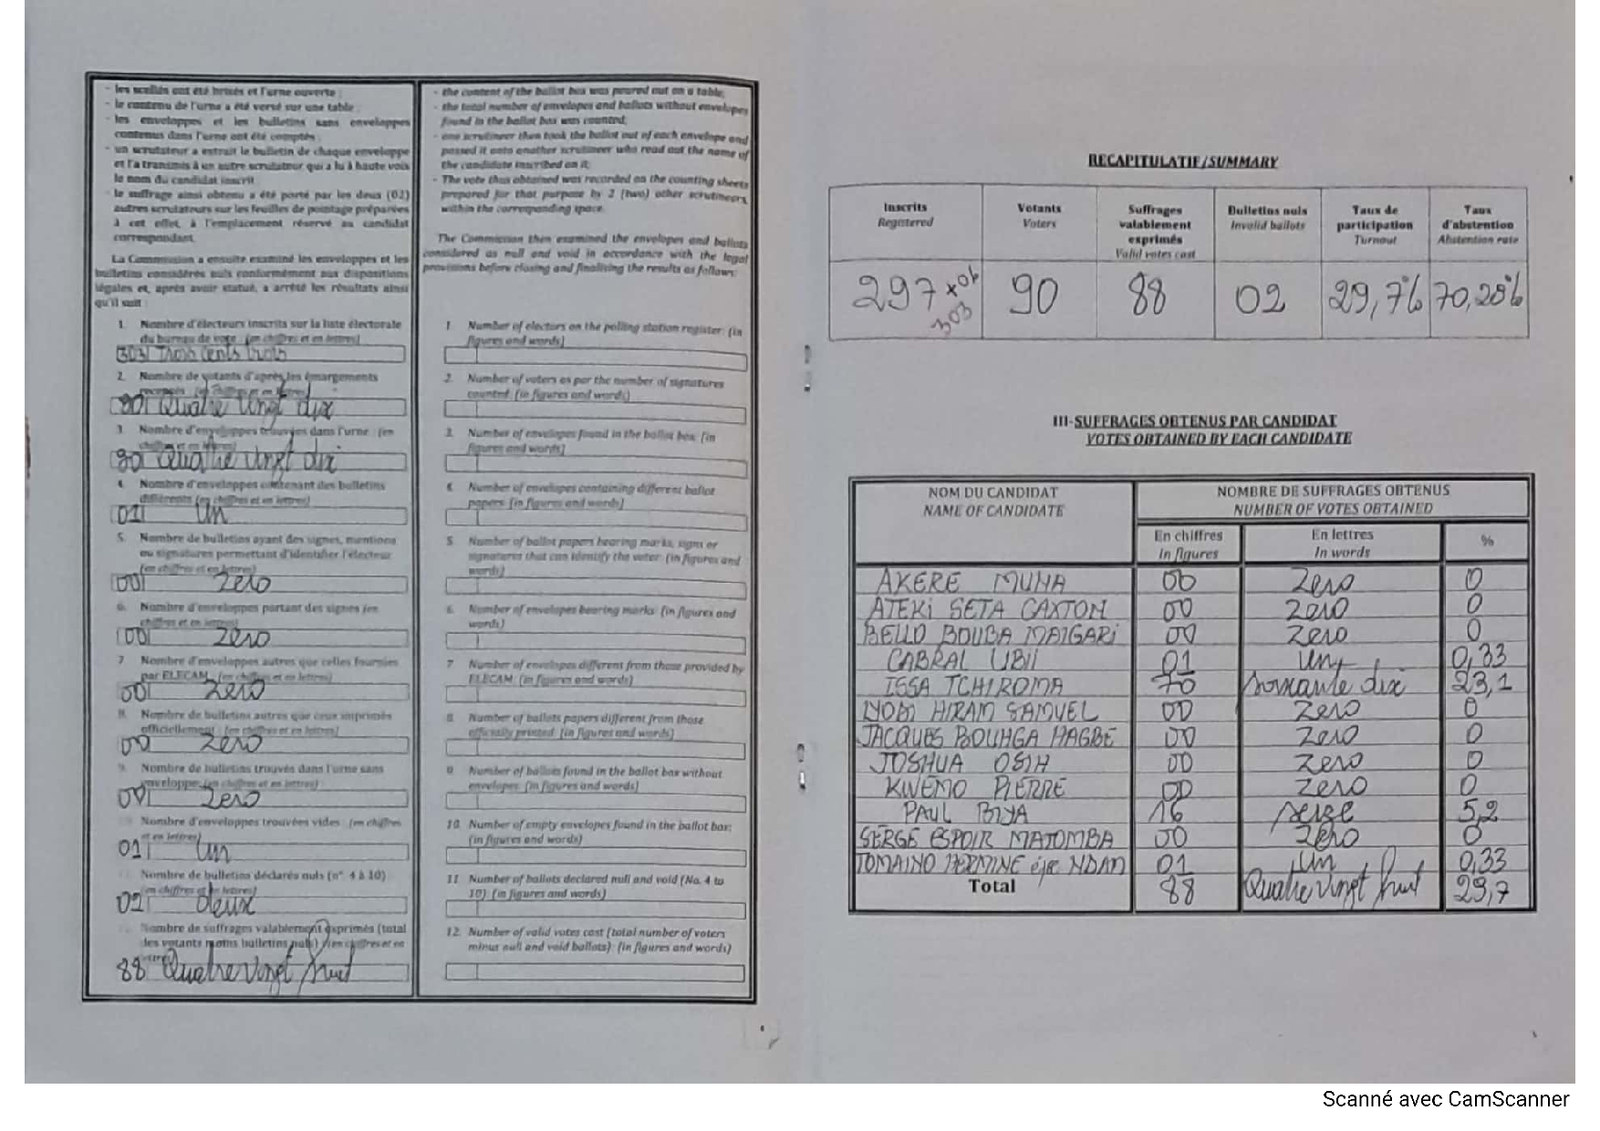 - les scellés ont été brisés et l'urne ouverte ;
- le contenu de l'urne a été versé sur une table ;
- les enveloppes et les bulletins sans enveloppes
contenus dans l'urne ont été comptés ;
- un scrutateur a extrait le bulletin de chaque enveloppe
et l'a transmis à un autre scrutateur qui a lu à haute voix
le nom du candidat inscrit
- le suffrage ainsi obtenu a été porté par les deux (02)
autres scrutateurs sur les feuilles de pointage préparées
à cet effet, à l'emplacement réservé au candidat
correspondant.
La Commission a ensuite examiné les enveloppes et les
bulletins considérés nuls conformément aux dispositions
légales et, après avoir statué, a arrêté les résultats ainsi
qu'il suit :
1. Nombre d'électeurs inscrits sur la liste électorale
du bureau de vote : (en chiffres et en lettres)
303 Trois cents trois
2. Nombre de votants d'après les émargements
(en chiffres et en lettres)
90 Quatre vingt dix
3. Nombre d'enveloppes trouvées dans l'urne : (en
chiffres et en lettres)
90 Quatre vingt dix
4. Nombre d'enveloppes contenant des bulletins
différents (en chiffres et en lettres)
01 Un
5. Nombre de bulletins ayant des signes, mentions
ou signatures permettant d'identifier l'électeur
(en chiffres et en lettres)
00 Zero
6. Nombre d'enveloppes portant des signes (en
chiffres et en lettres)
00 Zero
7. Nombre d'enveloppes autres que celles fournies
par ELECAM : (en chiffres et en lettres)
00 Zero
8. Nombre de bulletins autres que ceux imprimés
officiellement : (en chiffres et en lettres)
00 Zero
9. Nombre de bulletins trouvés dans l'urne sans
enveloppe : (en chiffres et en lettres)
00 Zero
Nombre d'enveloppes trouvées vides : (en chiffres
et en lettres)
01 Un
Nombre de bulletins déclarés nuls (n° 4 à 10) :
(en chiffres et en lettres)
02 deux
Nombre de suffrages valablement exprimés (total
des votants moins bulletins nuls) : (en chiffres et en
lettres)
88 Quatre vingt huit
- the content of the ballot box was poured out on a table;
- the total number of envelopes and ballots without envelopes
found in the ballot box was counted;
- one scrutineer then took the ballot out of each envelope and
passed it onto another scrutineer who read out the name of
the candidate inscribed on it;
- The vote thus obtained was recorded on the counting sheets
prepared for that purpose by 2 (two) other scrutineers,
within the corresponding space.
The Commission then examined the envelopes and ballots
considered as null and void in accordance with the legal
provisions before closing and finalising the results as follows:
1 Number of electors on the polling station register: (in
figures and words)
2. Number of voters as per the number of signatures
counted: (in figures and words)
3. Number of envelopes found in the ballot box: (in
figures and words)
4. Number of envelopes containing different ballot
papers: (in figures and words)
5 Number of ballot papers bearing marks, signs or
signatures that can identify the voter: (in figures and
words)
6. Number of envelopes bearing marks: (in figures and
words)
7 Number of envelopes different from those provided by
ELECAM: (in figures and words)
8. Number of ballots papers different from those
officially printed: (in figures and words)
9 Number of ballots found in the ballot box without
envelopes: (in figures and words)
10. Number of empty envelopes found in the ballot box:
(in figures and words)
11 Number of ballots declared null and void (No. 4 to
10): (in figures and words)
12. Number of valid votes cast (total number of voters
minus null and void ballots): (in figures and words)
RECAPITULATIF/SUMMARY
Inscrits
Registered
Votants
Voters
Suffrages
valablement
exprimés
Valid votes cast
Bulletins nuls
Invalid ballots
Taux de
participation
Turnout
Taux
d'abstention
Abstention rate
297 +06
303
90
88
02
29,7%
70,20%
III-SUFFRAGES OBTENUS PAR CANDIDAT
VOTES OBTAINED BY EACH CANDIDATE
NOM DU CANDIDAT
NAME OF CANDIDATE
NOMBRE DE SUFFRAGES OBTENUS
NUMBER OF VOTES OBTAINED
En chiffres
In figures
En lettres
In words
%
AKERE MUNA 00 Zero 0
ATEKI SETA CAXTON 00 Zero 0
BELLO BOUBA MAIGARI 00 Zero 0
CABRAL LIBII 01 Un 0,33
ISSA TCHIROMA 70 Soixante dix 23,1
IYODI HIRAM SAMUEL 00 Zero 0
JACQUES BOUHGA HAGBE 00 Zero 0
JOSHUA OSIH 00 Zero 0
KWEMO PIERRE 00 Zero 0
PAUL BIYA 16 seize 5,2
SERGE ESPOIR MATOMBA 00 Zero 0
TOMAINO HERMINE épse NDAM 01 Un 0,33
Total 88 Quatre vingt huit 29,7
Scanné avec CamScanner